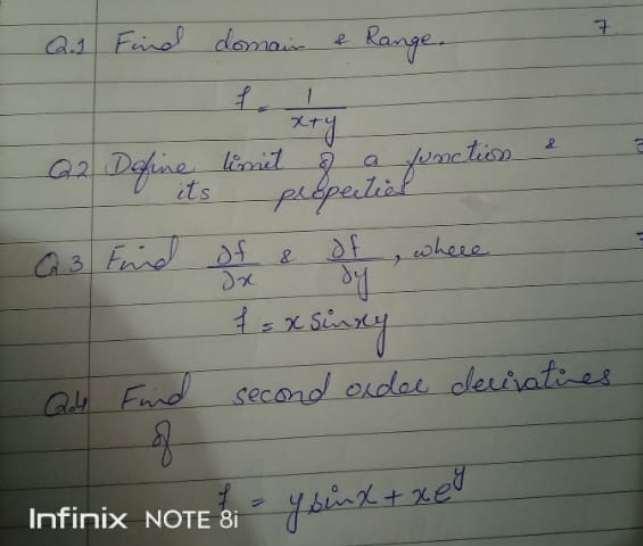 Q.1 Find domain & Range. 7
f = 1/(x+y)
Q2 Define limit of a function &
its properties
Q3 Find ∂f/∂x & ∂f/∂y, where
f = x sinxy
Q.4 Find second order derivatives
of
f = y sinx + xe^y
Infinix NOTE 8i